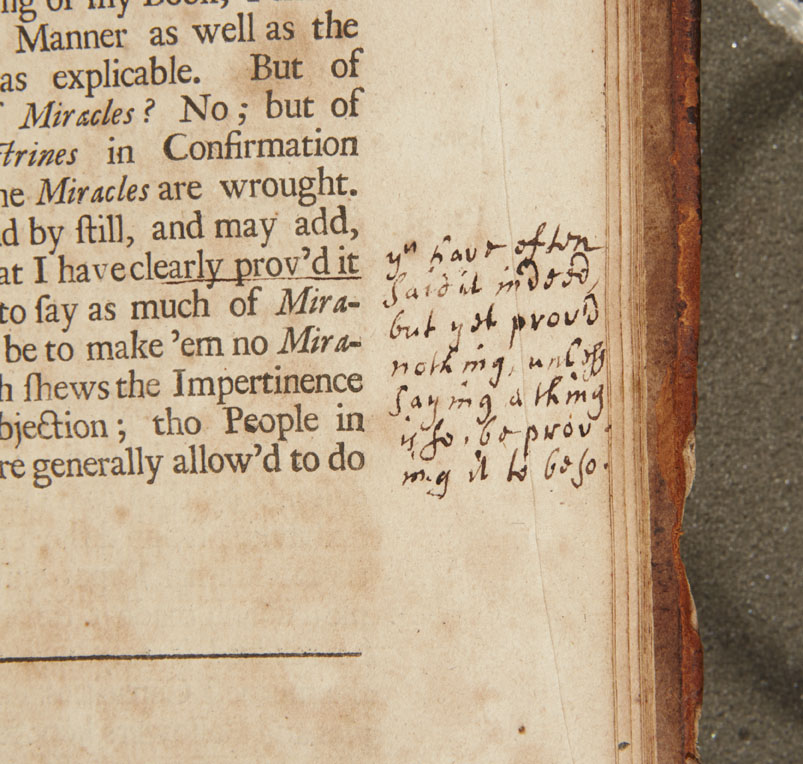 ng of my Book, I
Manner as well as the
as explicable. But of
f Miracles? No; but of
ctrines in Confirmation
he Miracles are wrought.
d by ſtill, and may add,
at I have clearly prov'd it
to ſay as much of Mira-
be to make 'em no Mira-
h ſhews the Impertinence
bjection; tho People in
re generally allow'd to do
yu have often
ſaid it indeed,
but yet prov'd
nothing, unleſs
ſaying a thing
is ſo, be prov-
ing it to be ſo.